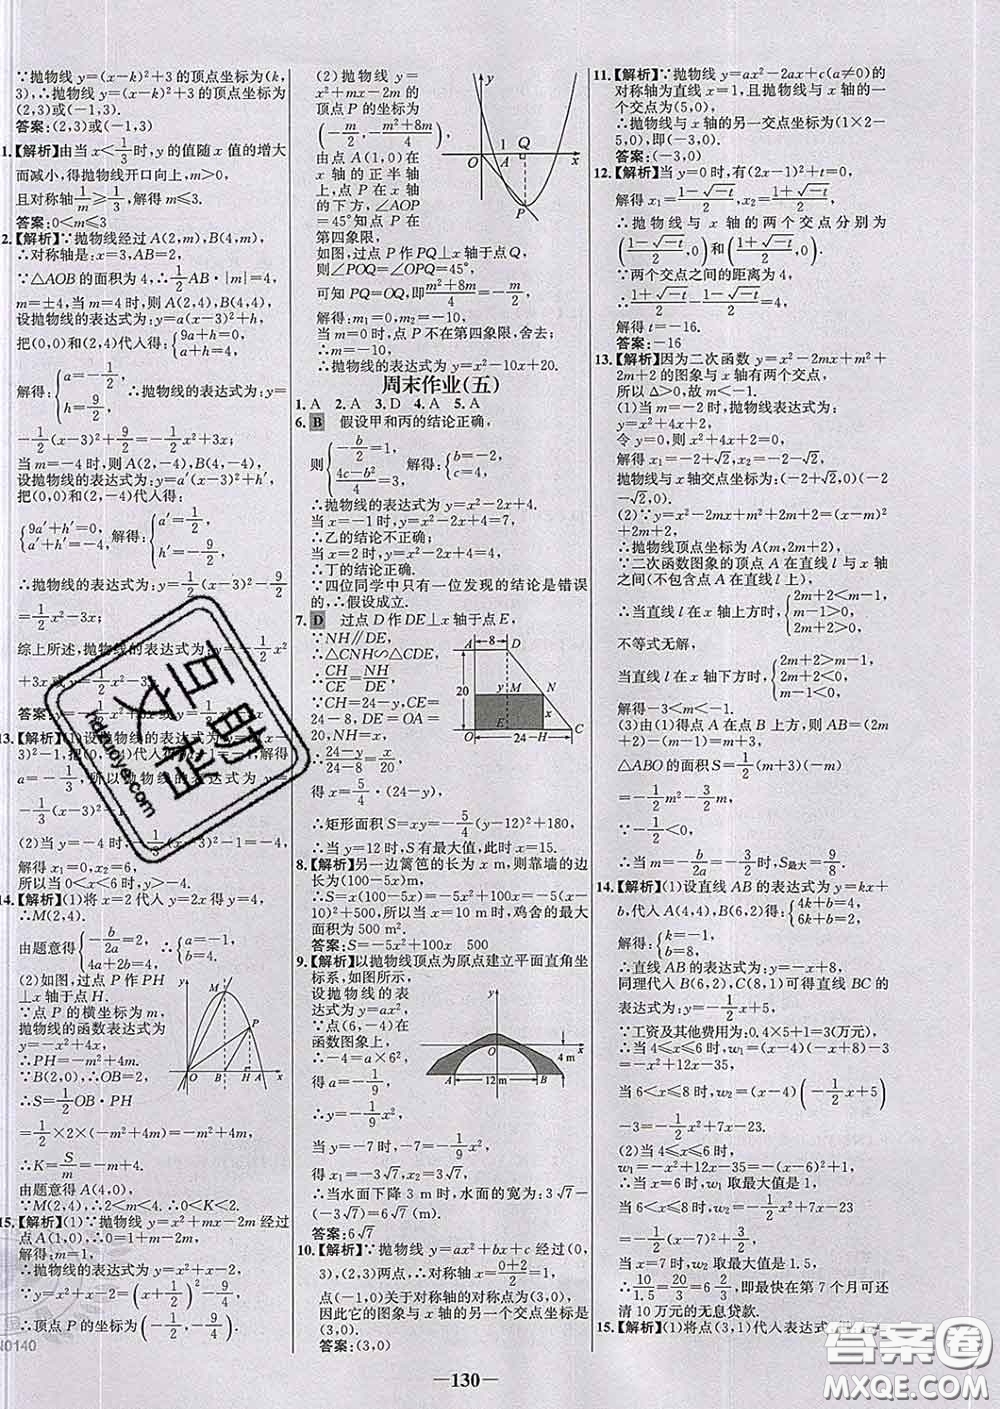 ∵抛物线 y=(x-k)²+3的顶点坐标为(k,
3),∴抛物线 y=(x-k)²+3的顶点坐标为
(2,3)或(-1,3).
答案:(2,3)或(-1,3)
1.【解析】由当 x<1/3时,y的值随 x 值的增大
而减小,得抛物线开口向上,m>0,
且对称轴1/m≥1/3,解得 m≤3.
答案:0<m≤3
2.【解析】∵抛物线经过 A(2,m),B(4,m),
∴对称轴是:x=3,AB=2,
∵△AOB的面积为4,∴1/2AB·|m|=4,
m=±4,当 m=4时,则 A(2,4),B(4,4),
设抛物线的表达式为:y=a(x-3)²+h,
把(0,0)和(2,4)代入得:{9a+h=0, a+h=4,
解得:{a=-1/2, h=9/2,∴抛物线的表达式为:y=
-1/2(x-3)²+9/2=-1/2x²+3x;
当 m=-4时,则 A(2,-4),B(4,-4),
设抛物线的表达式为:y=a′(x-3)²+h′,
把(0,0)和(2,-4)代入得:
{9a′+h′=0, a′+h′=-4, 解得:{a′=1/2, h′=-9/2,
∴抛物线的表达式为:y=1/2(x-3)²-9/2=
1/2x²-3x,
综上所述,抛物线的表达式为:y=-1/2x²
+3x或 y=1/2x²-3x.
13.【解析】(1)设抛物线的表达式为:y=a(x-
3)²-1,把(0,-4)代入得
a=-1/3,所以抛物线的表达式为 y=
-1/3(x-3)²-1.
(2)当 y=-4时,-1/3(x-3)²-1=-4,
解得 x₁=0,x₂=6,
所以当 0<x<6时,y>-4.
14.【解析】(1)将 x=2代入 y=2x得 y=4,
∴M(2,4).
由题意得{-b/2a=2, 4a+2b=4, ∴{a=-1, b=4.
(2)如图,过点 P 作 PH
⊥x轴于点 H.
∵点 P 的横坐标为 m,
抛物线的函数表达式为
y=-x²+4x,
∴PH=-m²+4m.
∵B(2,0),∴OB=2,
∴S=1/2OB·PH
=1/2×2×(-m²+4m)=-m²+4m,
∴K=S/m=-m+4.
由题意得 A(4,0),
∵M(2,4),∴2<m<4.∴0<K<2.
15.【解析】(1)∵抛物线 y=x²+mx-2m 经过
点 A(1,0),∴0=1+m-2m,
解得:m=1,
∴抛物线的表达式为 y=x²+x-2.
∵y=x²+x-2=(x+1/2)²-9/4,
∴顶点 P 的坐标为(-1/2,-9/4).
(2)抛物线 y=
x²+mx-2m 的
顶点 P 的坐标为
(-m/2,-(m²+8m)/4),
由点 A(1,0)在
x 轴的正半轴
上,点 P 在 x 轴
的下方,∠AOP
=45°知点 P 在
第四象限,
如图,过点 P 作 PQ⊥x 轴于点 Q,
则∠POQ=∠OPQ=45°,
可知 PQ=OQ,即(m²+8m)/4=-m/2,
解得:m₁=0,m₂=-10,
当 m=0时,点 P 不在第四象限,舍去;
∴m=-10,
∴抛物线的表达式为 y=x²-10x+20.
周末作业(五)
1.A 2.A 3.D 4.A 5.A
6. B 假设甲和丙的结论正确,
则{-b/2=1, (4c-b²)/4=3, 解得:{b=-2, c=4,
∴抛物线的表达式为 y=x²-2x+4.
当 x=-1时,y=x²-2x+4=7,
∴乙的结论不正确;
当 x=2时,y=x²-2x+4=4,
∴丁的结论正确.
∵四位同学中只有一位发现的结论是错误
的,∴假设成立.
7. D 过点 D 作 DE⊥x 轴于点 E,
∵NH∥DE,
∴△CNH∽△CDE,
∴CH/CE=NH/DE,
∵CH=24-y,CE=
24-8,DE=OA=
20,NH=x,
∴(24-y)/(24-8)=x/20,
得 x=5/4·(24-y),
∴矩形面积 S=xy=-5/4(y-12)²+180,
∴当 y=12时,S有最大值,此时 x=15.
8.【解析】另一边篱笆的长为 x m,则靠墙的边
长为(100-5x)m,
∴S=x(100-5x)=-5x²+100x=-5(x-
10)²+500,所以当 x=10 m时,鸡舍的最大
面积为 500 m².
答案:S=-5x²+100x 500
9.【解析】以抛物线顶点为原点建立平面直角坐
标系,如图所示,
设抛物线的表
达式为 y=ax²,
∵点(6,-4)在
函数图象上,
∴-4=a×6²,
得 a=-1/9,
∴y=-1/9x²,
当 y=-7时,-7=-1/9x²,
得 x₁=-3√7,x₂=3√7,
∴当水面下降 3 m时,水面的宽为:3√7-
(-3√7)=6√7(m).
答案:6√7
10.【解析】∵抛物线 y=ax²+bx+c 经过(0,
3),(2,3)两点,∴对称轴 x=(0+2)/2=1,
点(-1,0)关于对称轴的对称点为(3,0),
因此它的图象与 x 轴的另一个交点坐标是
(3,0).
答案:(3,0)
11.【解析】∵抛物线 y=ax²-2ax+c(a≠0)的
对称轴为直线 x=1,且抛物线与 x 轴的一
个交点为(5,0),
∴抛物线与 x 轴的另一交点坐标为(1×2-
5,0),即(-3,0).
答案:(-3,0)
12.【解析】当 y=0时,有(2x-1)²+t=0,
解得 x₁=(1-√-t)/2,x₂=(1+√-t)/2,
∴抛物线与 x 轴的两个交点分别为
((1-√-t)/2,0)和((1+√-t)/2,0).
∵两个交点之间的距离为4,
∴(1+√-t)/2-(1-√-t)/2=4,
解得 t=-16.
答案:-16
13.【解析】因为二次函数 y=x²-2mx+m²+
2m+2的图象与 x 轴有两个交点,
所以 Δ>0,故 m<-1.
(1)当 m=-2时,抛物线的表达式为:
y=x²+4x+2,
令 y=0,x²+4x+2=0,
解得 x₁=-2+√2,x₂=-2-√2,
抛物线与 x轴交点坐标为:(-2+√2,0),
(-2-√2,0).
(2)∵y=x²-2mx+m²+2m+2=(x-m)²
+2m+2,
∴抛物线顶点坐标为 A(m,2m+2),
∵二次函数图象的顶点 A 在直线 l 与 x 轴
之间(不包含点 A 在直线 l 上),
∴当直线 l 在 x轴上方时,{2m+2<m-1, m-1>0, 2m+2>0,
不等式无解,
当直线 l 在 x 轴下方时,{2m+2>m-1, 2m+2<0, m-1<0,
解得-3<m<-1.
(3)由(1)得点 A 在点 B 上方,则 AB=(2m
+2)-(m-1)=m+3,
△ABO的面积 S=1/2(m+3)(-m)
=-1/2m²-3/2m,
∵-1/2<0,
∴当 m=-b/2a=-3/2时,S最大=9/8.
14.【解析】(1)设直线 AB 的表达式为 y=kx+
b,代入 A(4,4),B(6,2)得:{4k+b=4, 6k+b=2,
解得:{k=-1, b=8,
∴直线 AB 的表达式为:y=-x+8,
同理代入 B(6,2),C(8,1)可得直线 BC 的
表达式为:y=-1/2x+5,
∵工资及其他费用为:0.4×5+1=3(万元),
∴当 4≤x≤6时,w₁=(x-4)(-x+8)-3
=-x²+12x-35,
当 6<x≤8时,w₂=(x-4)(-1/2x+5)
-3=-1/2x²+7x-23.
(2)当 4≤x≤6时,
w₁=-x²+12x-35=-(x-6)²+1,
∴当 x=6时,w₁取最大值是1,
当 6<x≤8时,w₂=-1/2x²+7x-23
=-1/2(x-7)²+3/2,
当 x=7时,w₂取最大值是1.5,
∴10/1.5=20/3=6 2/3,即最快在第7个月可还
清10万元的无息贷款.
15.【解析】(1)将点(3,1)代入表达式
A B C D E H M N O P Q x y
8 20 24-H 12 m 4 m 1
互助文档
hdzuoye.com
答案圈
MXQE.COM
N0140
—130—